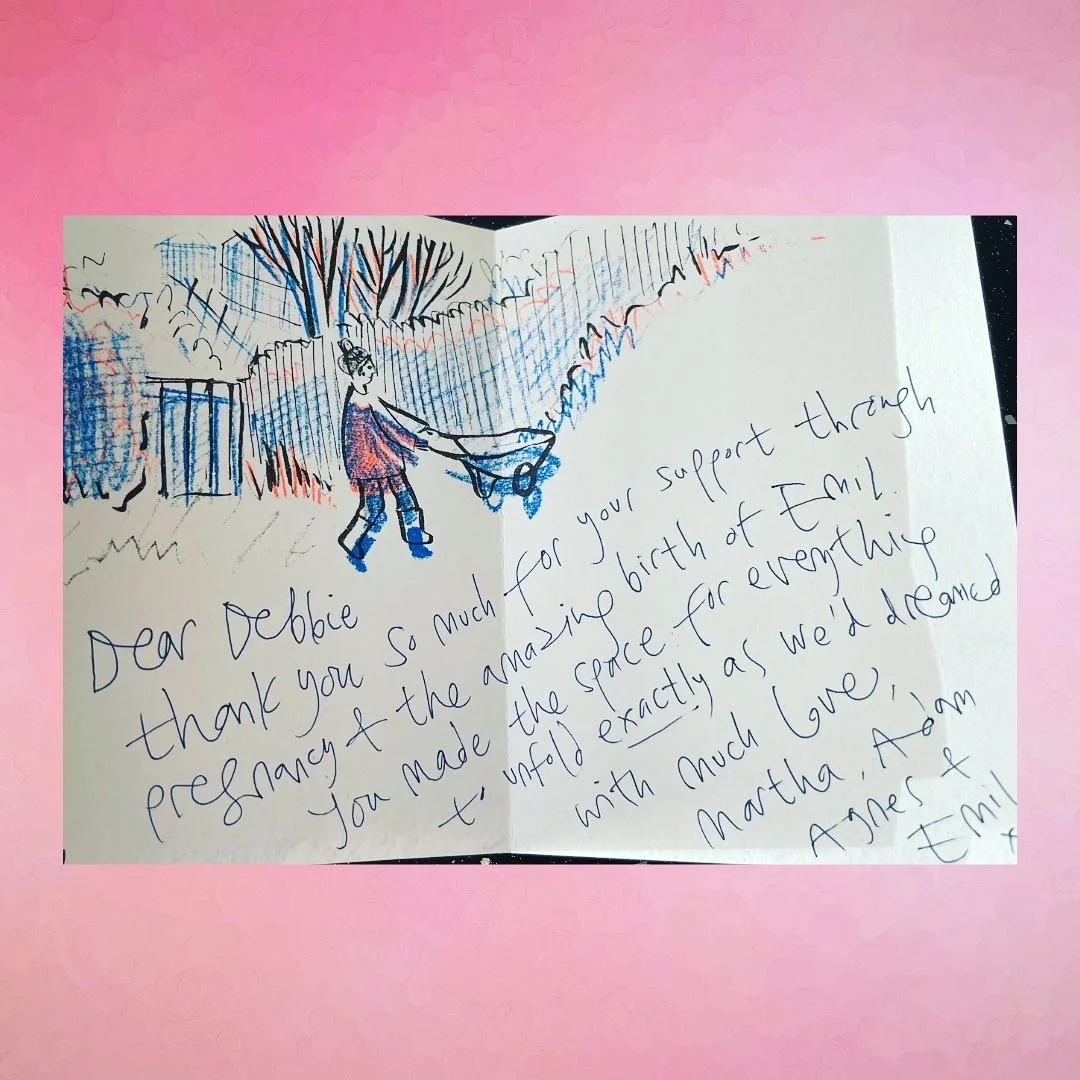 Dear Debbie
thank you so much for your support through
pregnancy & the amazing birth of Emil.
You made the space for everything
to unfold exactly as we'd dreamed
with much love,
Martha, Adam
Agnes &
Emil
x